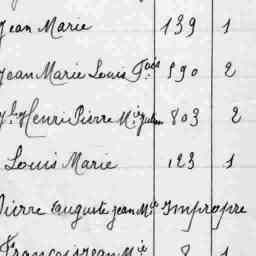 Jean Marie 139 1
Jean Marie Louis Fçois 590 2
Henri Pierre Mie 803 2
Louis Marie 123 1
Pierre Auguste Jean Mie Impropre
François Jean Mie 8 1